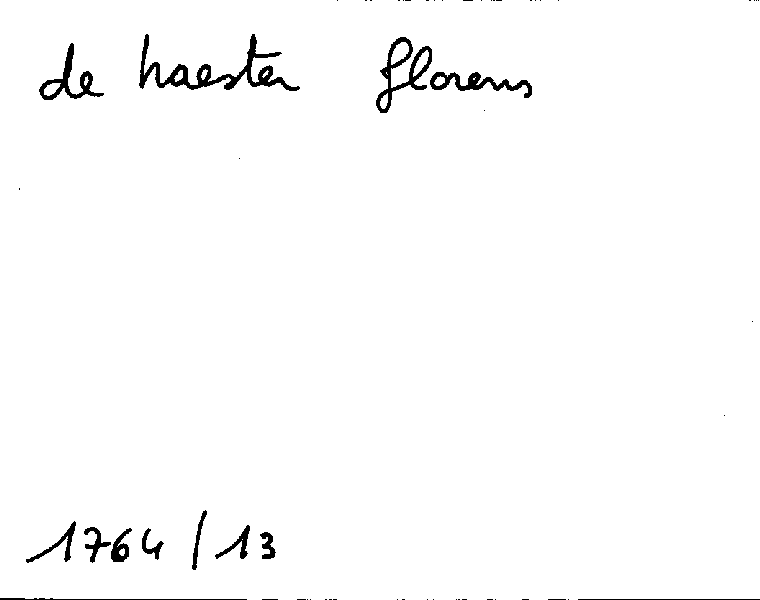 de haester florens
1764/13